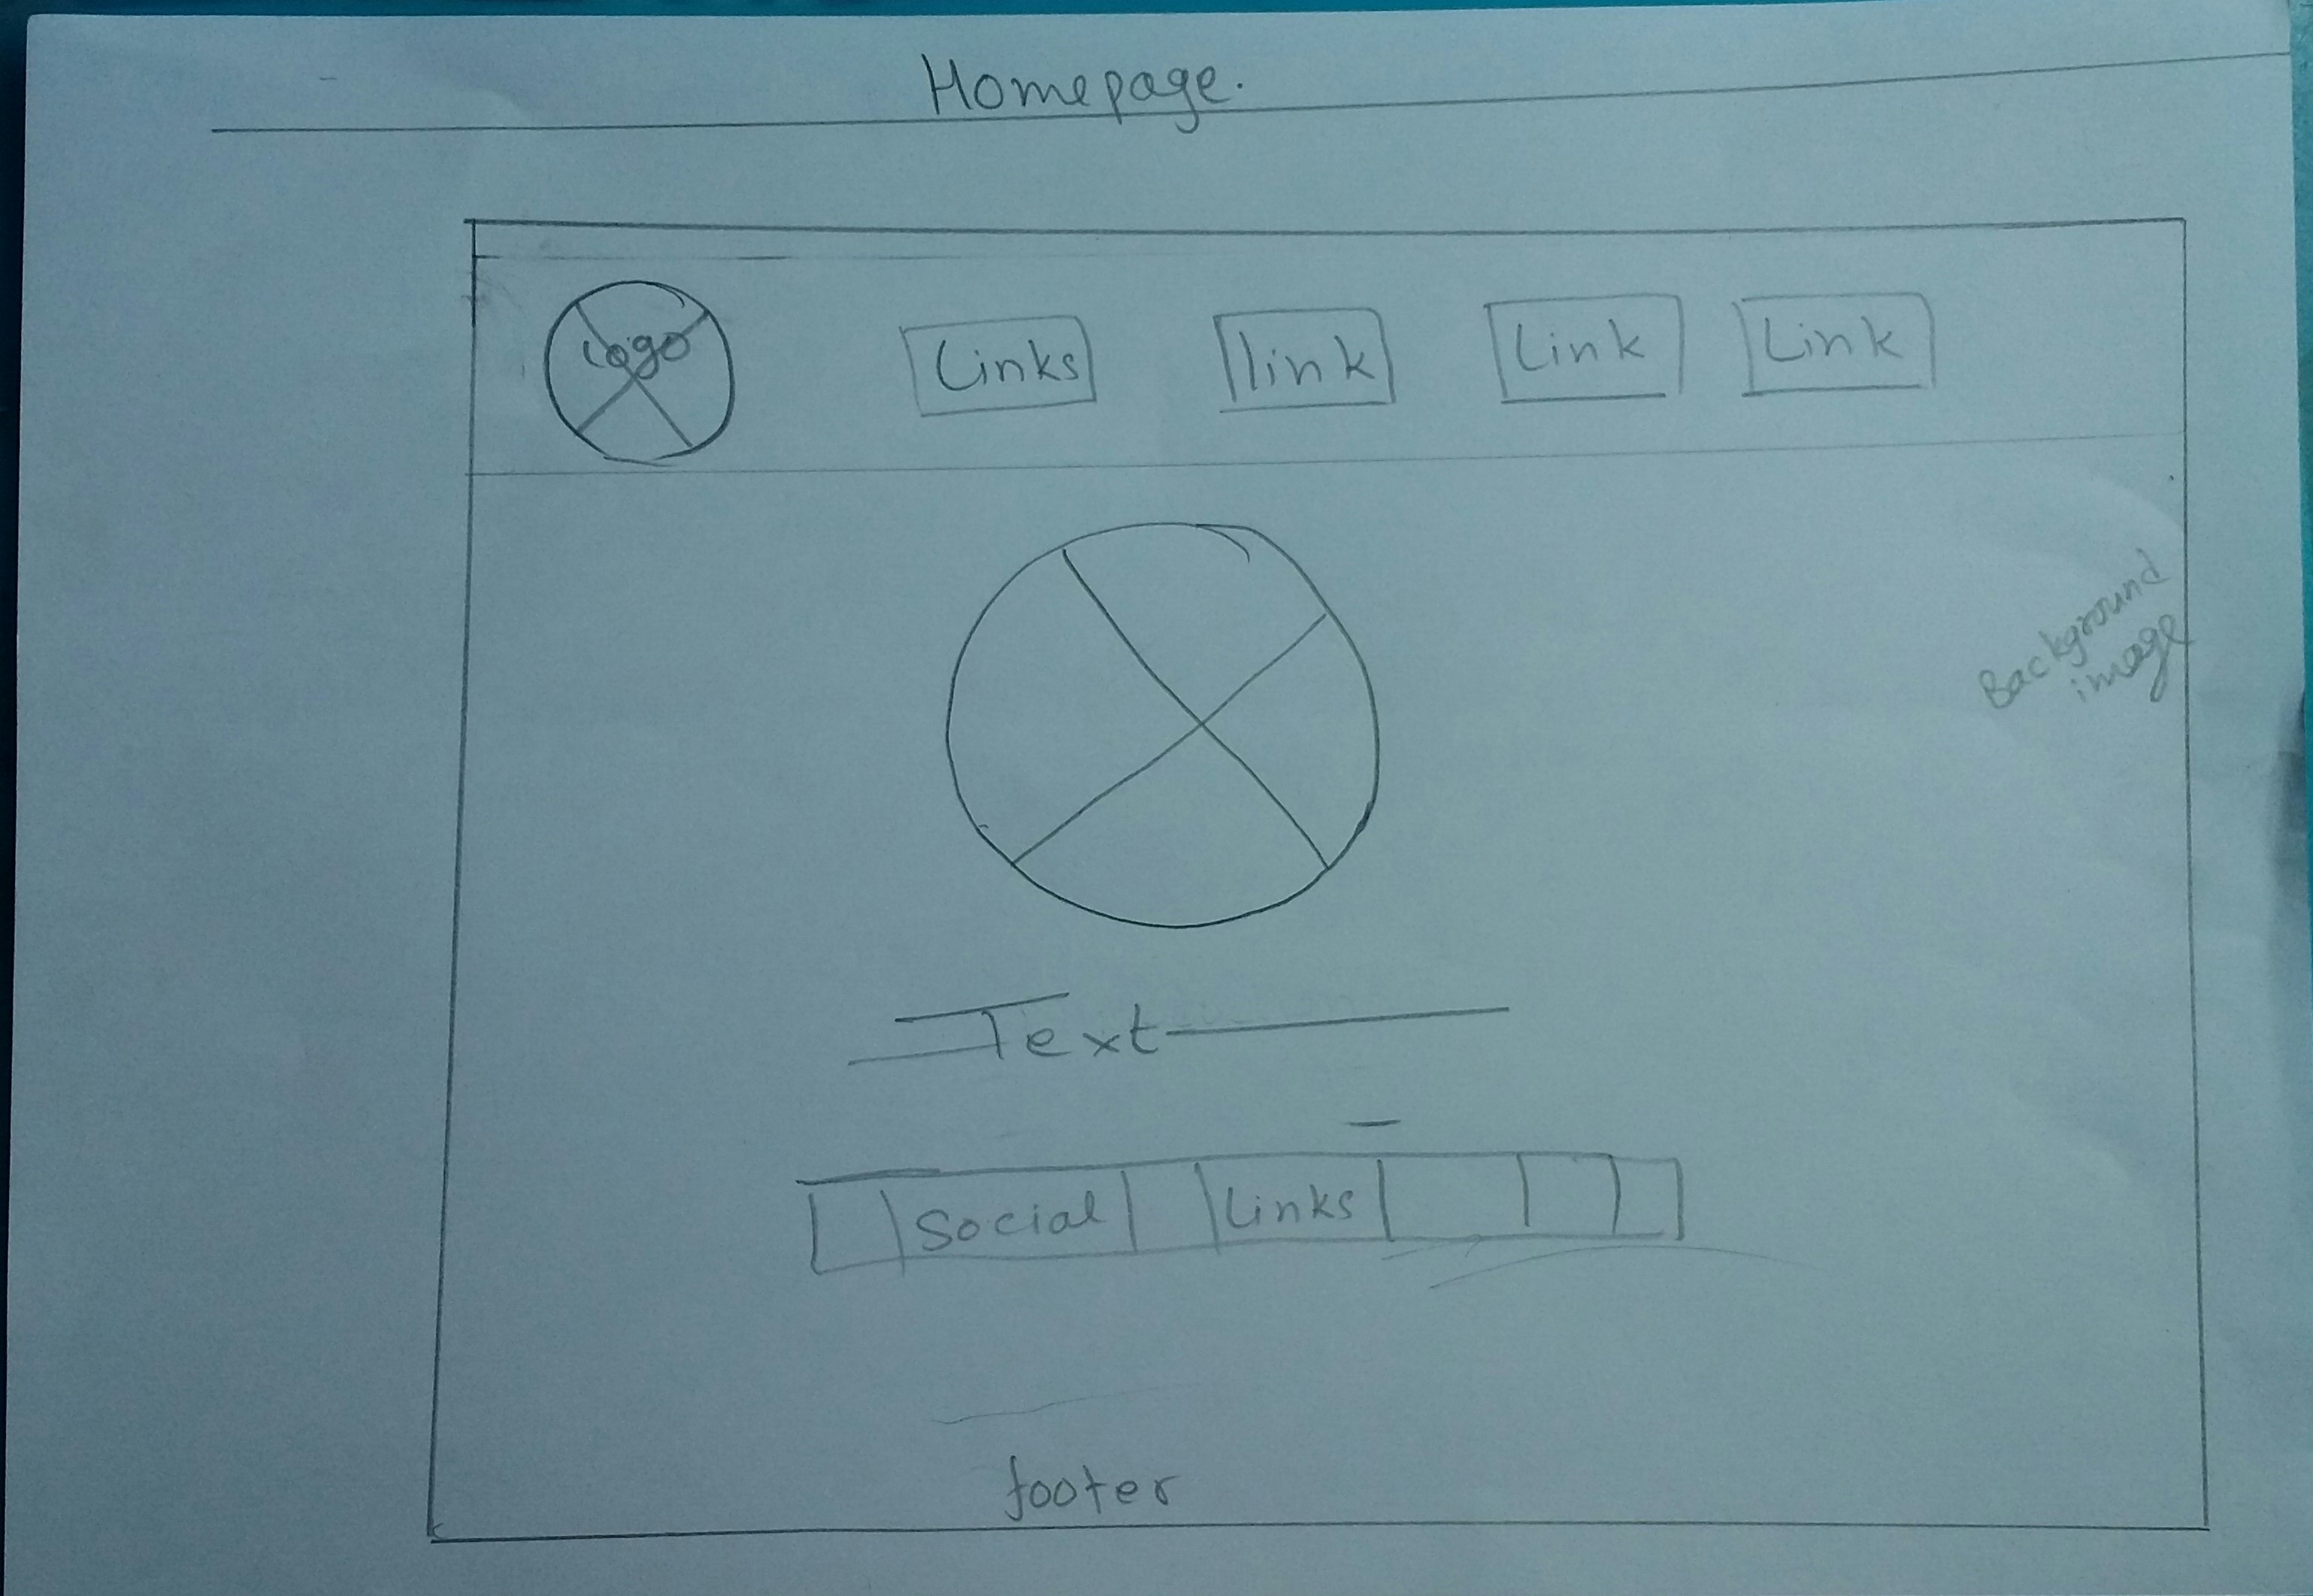 Homepage.
Logo
Links link Link Link
Background
image
Text
Social Links
footer